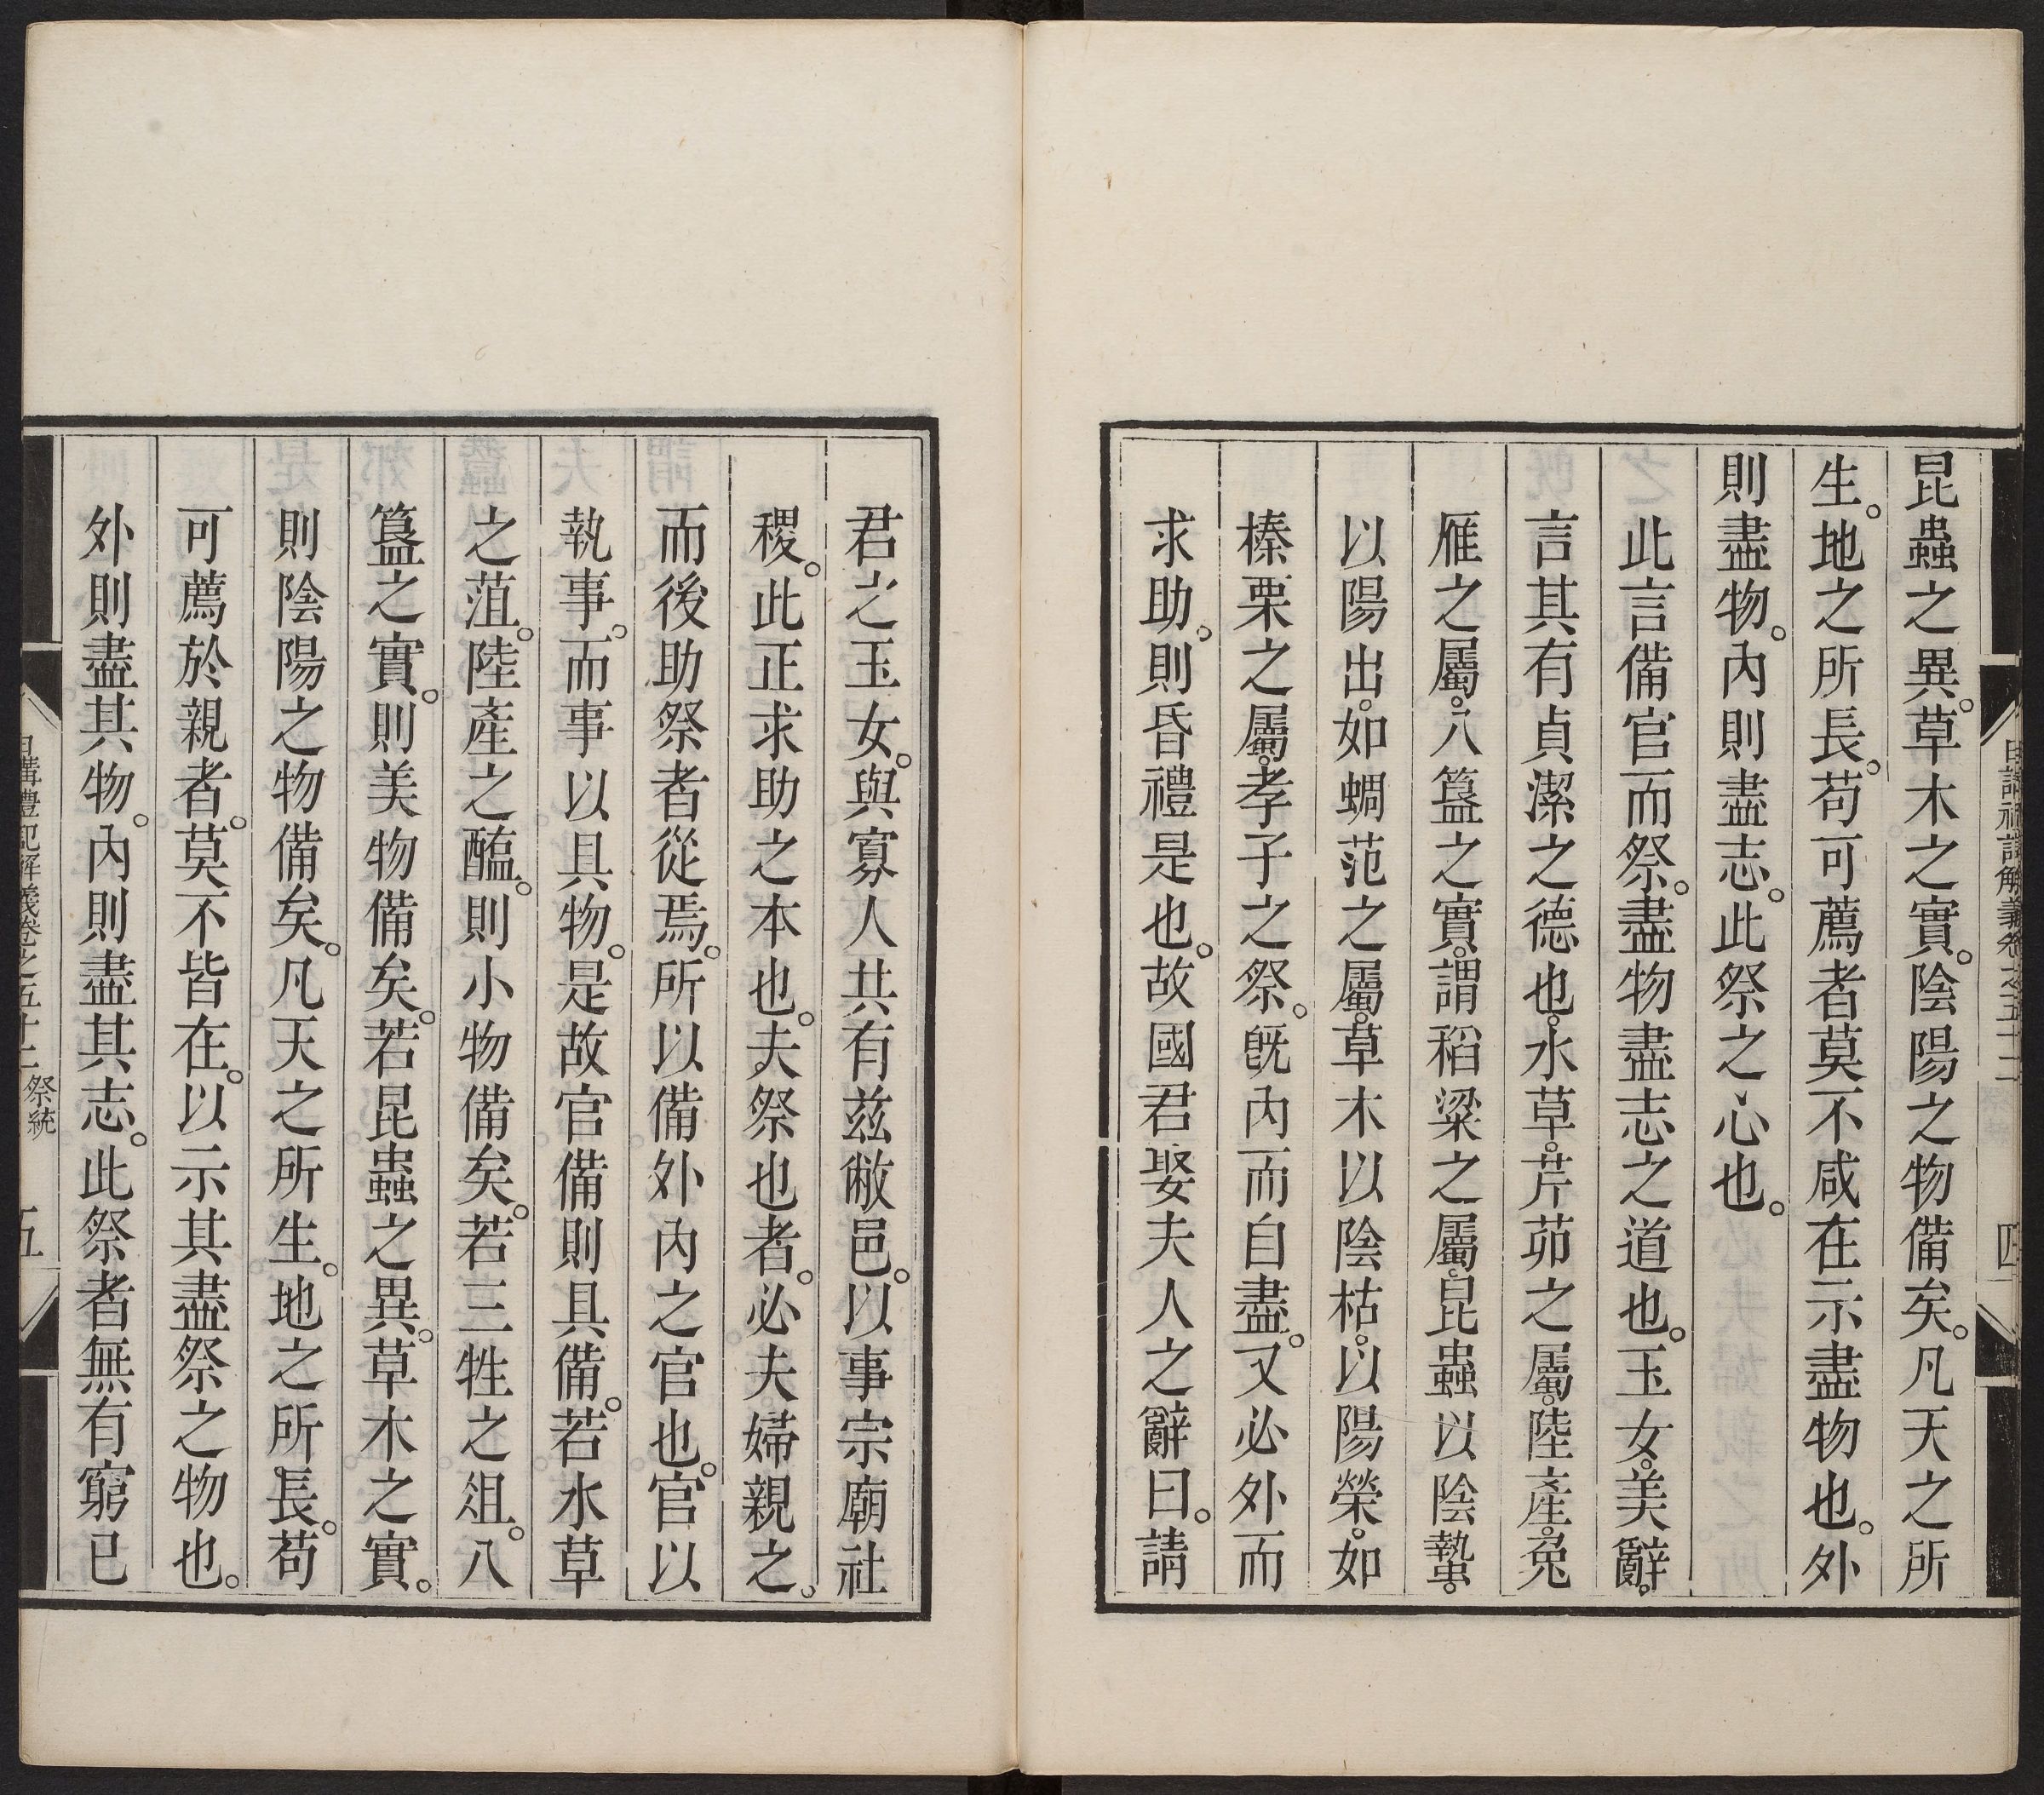 昆蟲之異。草木之實。陰陽之物備矣。凡天之所
生。地之所長。苟可薦者莫不咸在示盡物也。外
則盡物。內則盡志。此祭之心也。
此言備官而祭。盡物盡志之道也。玉女。美辭。
言其有貞潔之德也。水草。芹茆之屬。陸產。兔
雁之屬。八簋之實。謂稻粱之屬。昆蟲以陰蟄。
以陽出。如蜩范之屬。草木以陰枯。以陽榮。如
榛栗之屬。孝子之祭。旣內而自盡。又必外而
求助。則昏禮是也。故國君娶夫人之辭曰。請
君之玉女。與寡人共有茲敝邑。以事宗廟社
稷。此正求助之本也。夫祭也者。必夫婦親之。
而後助祭者從焉。所以備外內之官也。官以
執事。而事以具物。是故官備則具備。若水草
之菹。陸產之醢。則小物備矣。若三牲之俎。八
簋之實。則美物備矣。若昆蟲之異。草木之實。
則陰陽之物備矣。凡天之所生。地之所長。苟
可薦於親者。莫不皆在。以示其盡祭之物也。
外則盡其物。內則盡其志。此祭者無有窮已
日講禮記解義卷之五十二 祭統 五